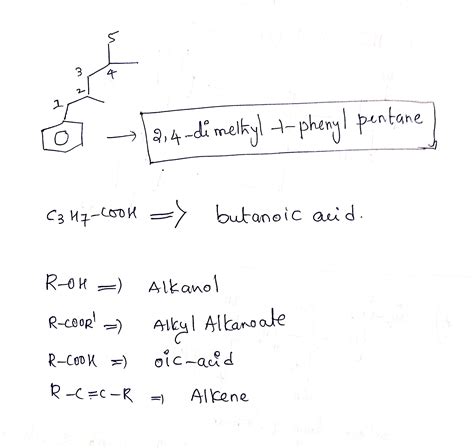 5
3
4
2
1
→ 2,4-dimethyl-1-phenyl pentane
C3H7-COOH => butanoic acid.
R-OH => Alkanol
R-COOR' => Alkyl Alkanoate
R-COOH => oic-acid
R-C=C-R => Alkene